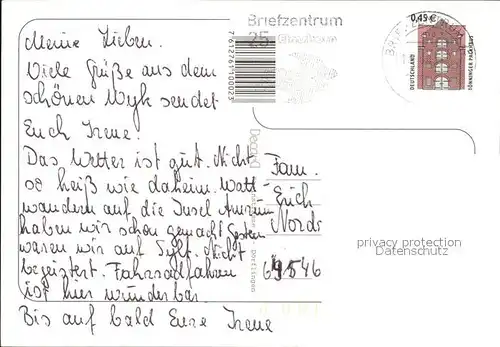 Meine Lieben.
Viele Grüße aus dem
schönen Wyk sendet
Euch Irene!
Das Wetter ist gut. Nicht
so heiß wie daheim. Watt
wandern auf die Insel Amrum
haben wir schon gemacht. Gestern
waren wir auf Sylt. Nicht
begeistert. Fahrradfahren
ist hier wunderbar.
Bis auf bald Eure Irene
Briefzentrum
25
7612761100023
0,45 €
DEUTSCHLAND
TÖNNINGER PACKHAUS
Fam.
Erich
Nords
69546
privacy protection
Datenschutz